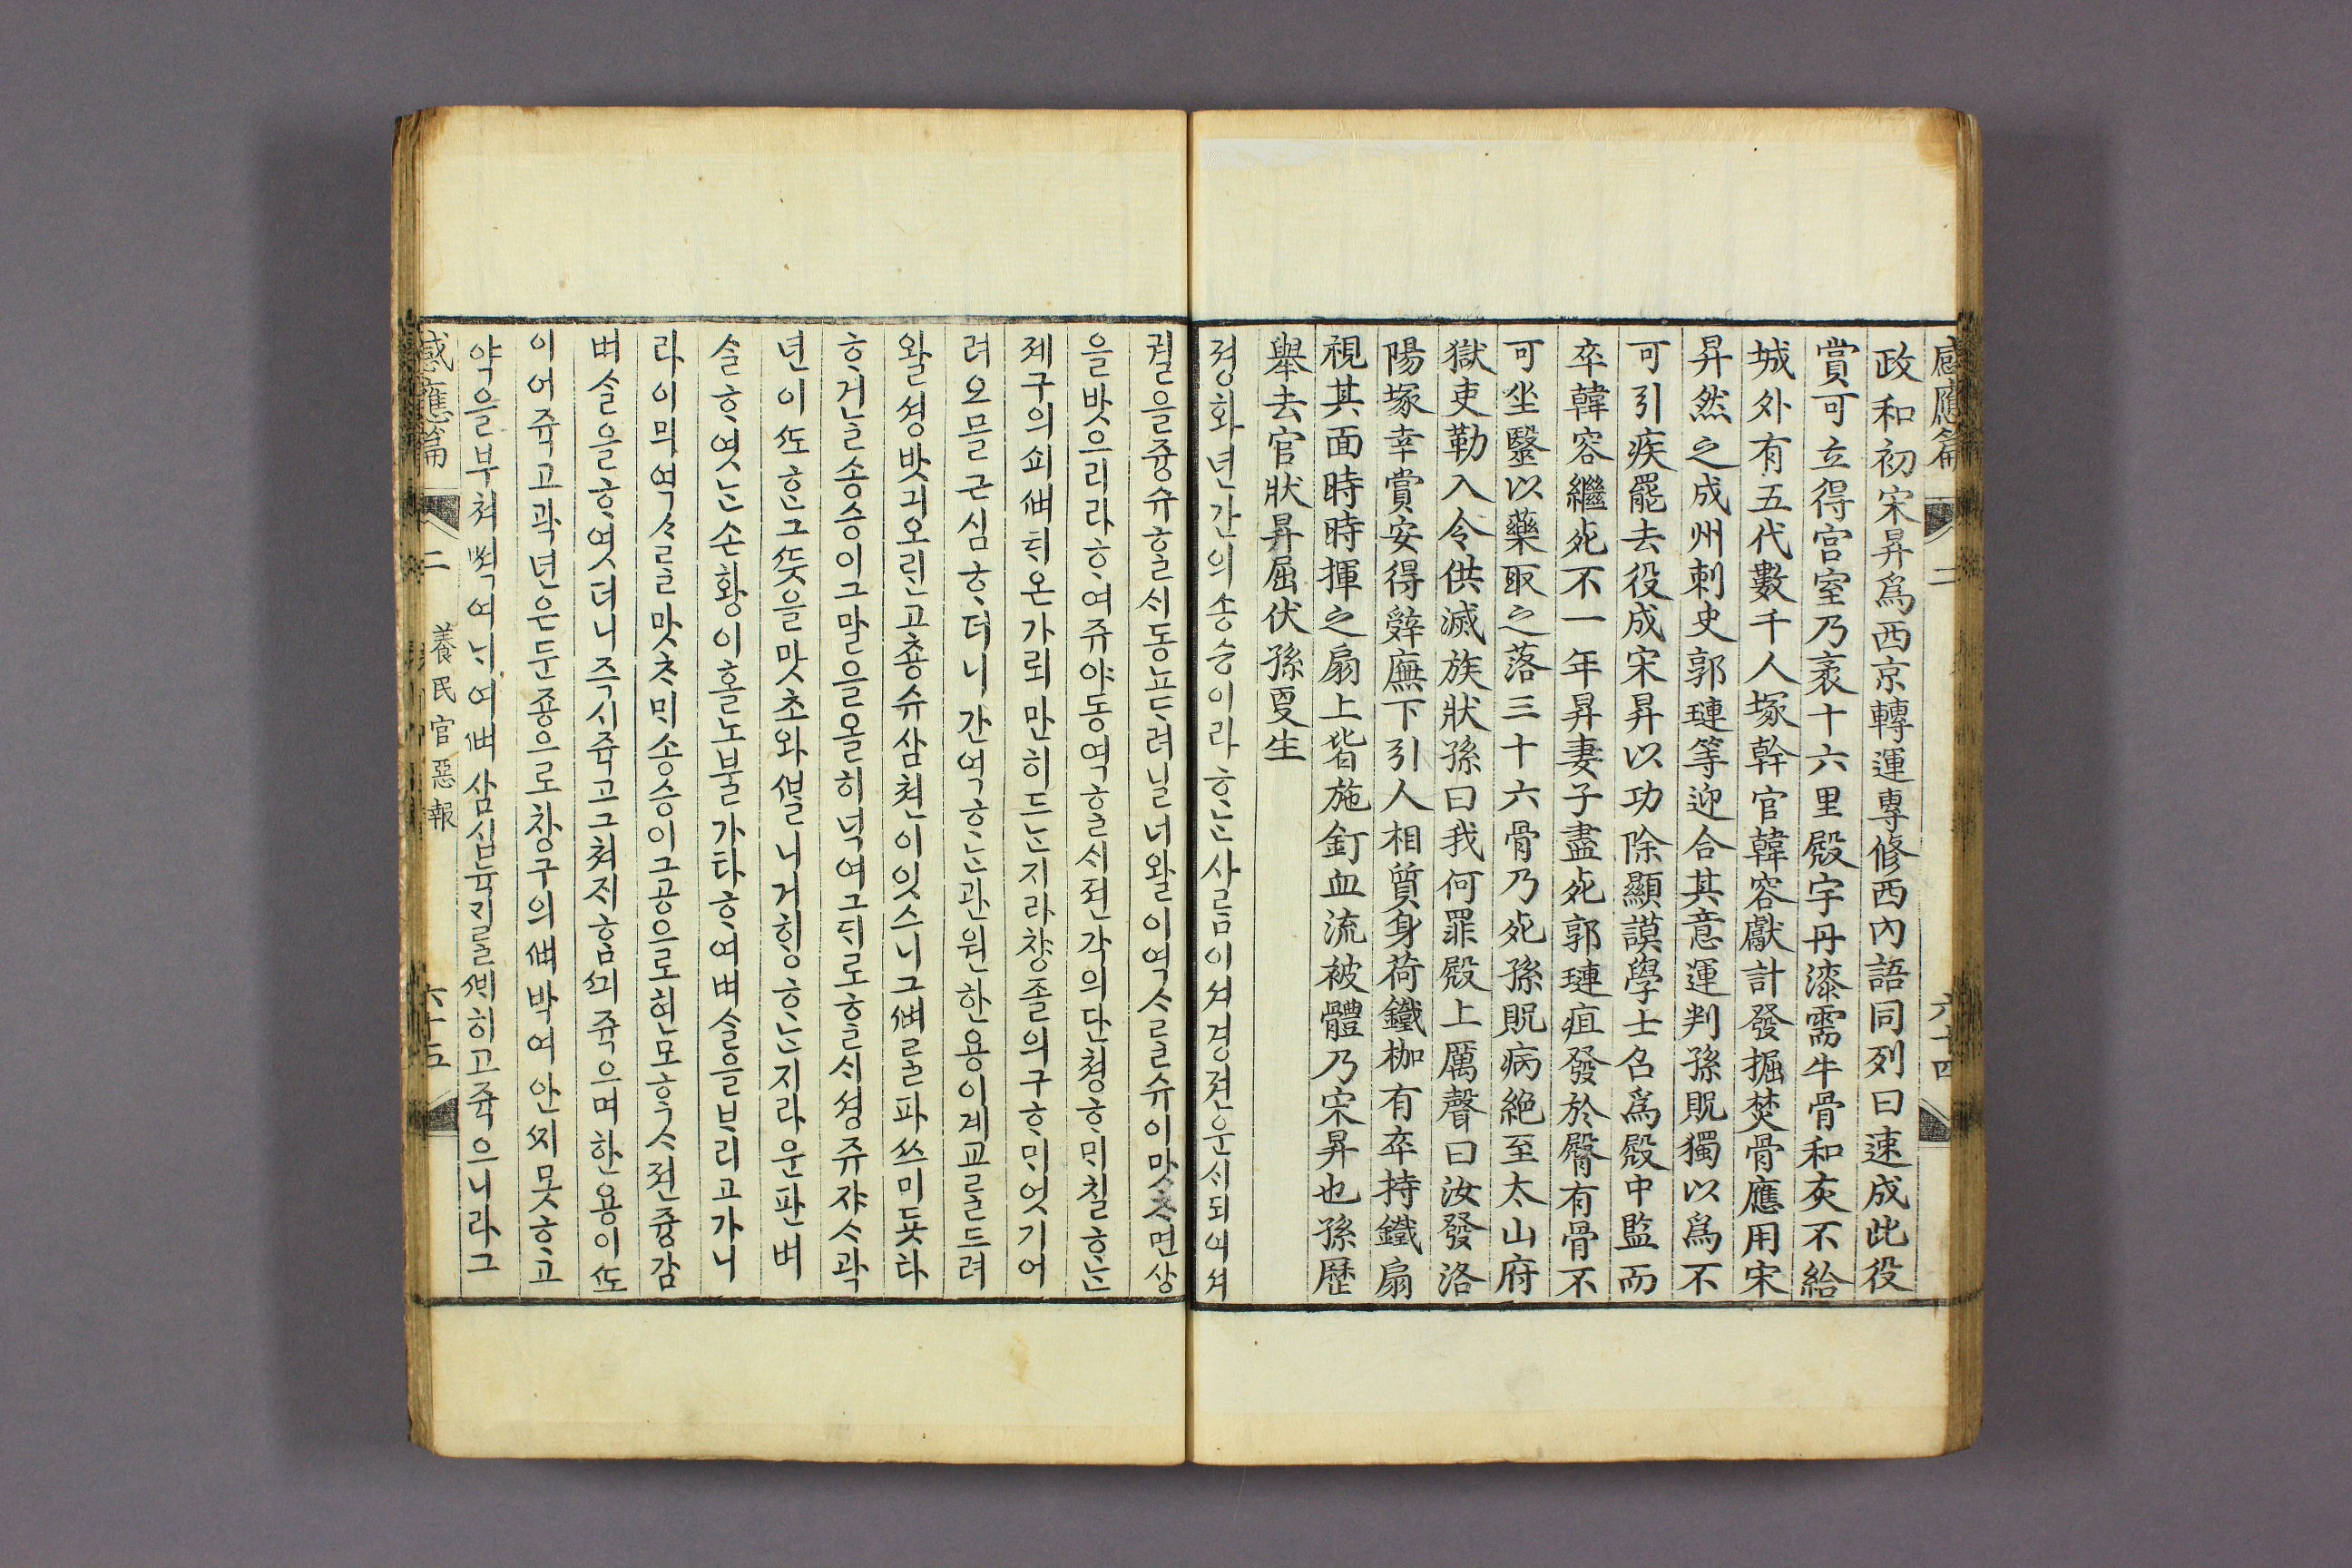 感應篇 二 六十四
政和初宋昇爲西京轉運專修西內語同列曰速成此役
賞可立得宮室乃袤十六里殿宇丹漆需牛骨和灰不給
城外有五代數千人塚幹官韓容獻計發掘焚骨應用宋
昇然之成州刺史郭璉等迎合其意運判孫貺獨以爲不
可引疾罷去役成宋昇以功除顯謨學士召爲殿中監而
卒韓容繼死不一年昇妻子盡死郭璉疽發於臀有骨不
可坐醫以藥取之落三十六骨乃死孫貺病絶至太山府
獄吏勒入令供滅族狀孫曰我何罪殿上厲聲曰汝發洛
陽塚幸賞安得辭廡下引人相質身荷鐵枷有卒持鐵扇
視其面時時揮之扇上皆施釘血流被體乃宋昇也孫歷
擧去官狀昇屈伏孫更生
졍화년간의송승이라ᄒᆞᄂᆞᆫ사ᄅᆞᆷ이셔경젼운시되여셔
궐을즁슈ᄒᆞᆯᄉᆡ동뇨ᄃᆞ려닐너왈이역ᄉᆞᄅᆞᆯ슈이맛ᄎᆞ면샹
을밧으리라ᄒᆞ여쥬야동역ᄒᆞᆯᄉᆡ젼각의단쳥ᄒᆞ며칠ᄒᆞᄂᆞᆫ
제구의쇠ᄲᅧᄐᆡ온가뢰만히드ᄂᆞᆫ지라챵졸의구ᄒᆞᄆᆡ엇기어
려오믈근심ᄒᆞ더니간역ᄒᆞᄂᆞᆫ관원한용이계교ᄅᆞᆯ드려
왈셩밧긔오ᄅᆡᆫ고춍슈삼쳔이잇스니그ᄲᅧᄅᆞᆯ파쓰미됴타
ᄒᆞ거ᄂᆞᆯ송승이그말을올히넉여그ᄃᆡ로ᄒᆞᆯᄉᆡ셩쥬쟈ᄉᆞ곽
년이ᄯᅩᄒᆞᆫ그ᄯᅳᆺ을맛초와ᄲᅥᆯ니거ᄒᆡᆼᄒᆞᄂᆞᆫ지라운판벼
슬ᄒᆞ엿ᄂᆞᆫ손황이홀노불가타ᄒᆞ여벼슬을ᄇᆞ리고가니
라이믜역ᄉᆞᄅᆞᆯ맛ᄎᆞᄆᆡ송승이그공으로현모ᄒᆞᆨᄉᆞ젼즁감
벼슬을ᄒᆞ엿더니즉시쥭고그쳐ᄌᆡᄒᆞᆷᄭᅴ쥭으며한용이ᄯᅩ
이어쥭고곽년은둔죵으로창구의ᄲᅧ박여안ᄶᅵ못ᄒᆞ고
약을부쳐여ᄂᆡ여ᄲᅧ삼십뉵ᄀᆡᄅᆞᆯᄲᅢ히고쥭으니라그
感應篇 二 養民官惡報 六十五